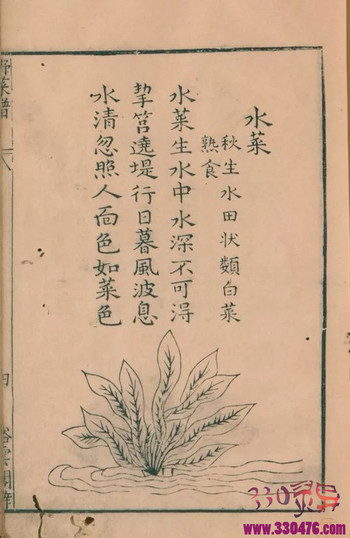 水菜
秋生水田状類白菜
熟食
水菜生水中水深不可得
挈筥遶堤行日暮風波息
水清忽照人面色如菜色
野菜譜
八
四
330
www.330476.com